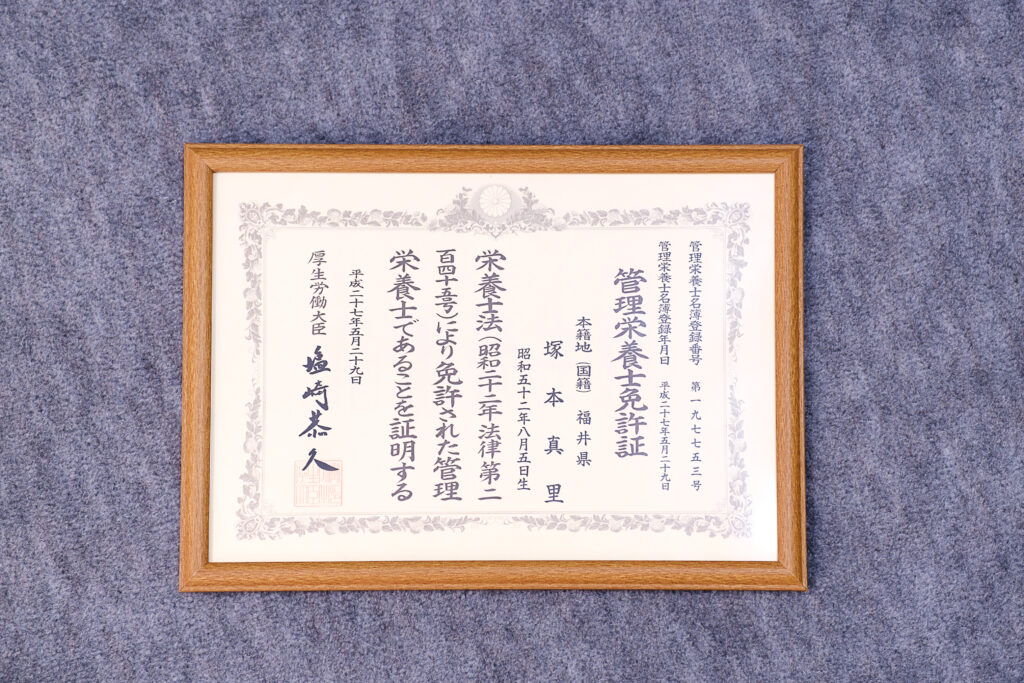 管理栄養士名簿登録番号 第一九七七五三号
管理栄養士名簿登録年月日 平成二十七年五月二十九日
管理栄養士免許証
本籍地(国籍) 福井県
塚本真里
昭和五十二年八月五日生
栄養士法(昭和二十二年法律第二
百四十五号)により免許された管理
栄養士であることを証明する
平成二十七年五月二十九日
厚生労働大臣 塩崎恭久